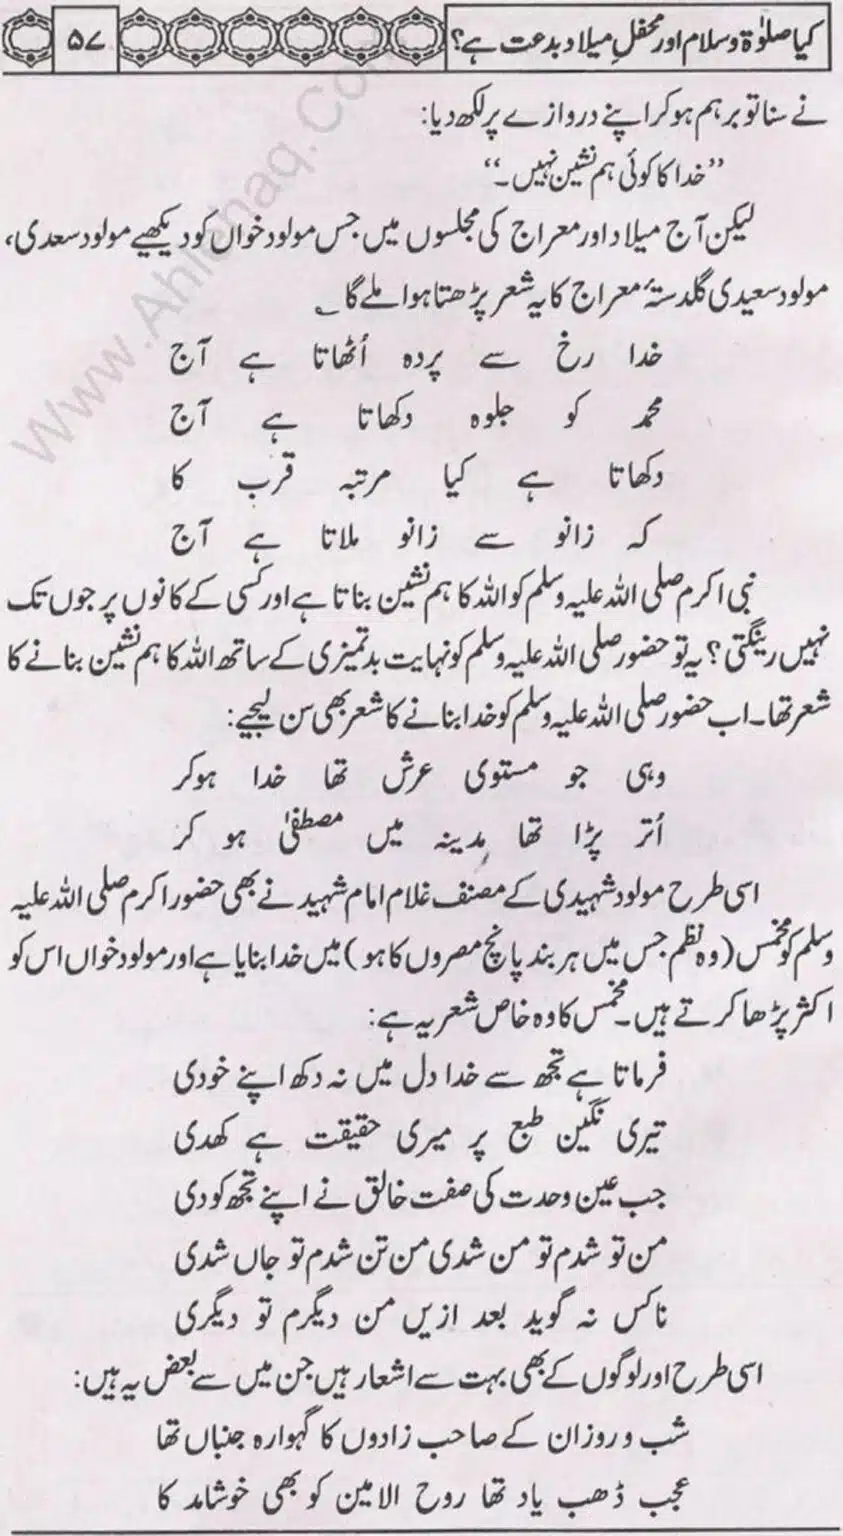 کیا صلوٰۃ و سلام اور محفلِ میلاد بدعت ہے؟ ۵۷
نے سنا تو برہم ہو کر اپنے دروازے پر لکھ دیا:
”خدا کا کوئی ہم نشین نہیں۔“
لیکن آج میلاد اور معراج کی مجلسوں میں جس مولود خواں کو دیکھیے مولود سعدی،
مولود سعیدی گلدستۂ معراج کا یہ شعر پڑھتا ہوا ملے گا ؎
خدا رخ سے پردہ اُٹھاتا ہے آج
محمد کو جلوہ دکھاتا ہے آج
دکھاتا ہے کیا مرتبہ قرب کا
کہ زانو سے زانو ملاتا ہے آج
نبی اکرم صلی اللہ علیہ وسلم کو اللہ کا ہم نشین بناتا ہے اور کسی کے کانوں پر جوں تک
نہیں رینگتی؟ یہ تو حضور صلی اللہ علیہ وسلم کو نہایت بدتمیزی کے ساتھ اللہ کا ہم نشین بنانے کا
شعر تھا۔ اب حضور صلی اللہ علیہ وسلم کو خدا بنانے کا شعر بھی سن لیجیے:
وہی جو مستوی عرش تھا خدا ہوکر
اُتر پڑا تھا مدینہ میں مصطفیٰ ہو کر
اسی طرح مولود شہیدی کے مصنف غلام امام شہید نے بھی حضور اکرم صلی اللہ علیہ
وسلم کو مخمس (وہ نظم جس میں ہر بند پانچ مصروں کا ہو) میں خدا بنایا ہے اور مولود خواں اس کو
اکثر پڑھا کرتے ہیں۔ مخمس کا وہ خاص شعر یہ ہے:
فرماتا ہے تجھ سے خدا دل میں نہ دکھ اپنے خودی
تیری نگین طبع پر میری حقیقت ہے کھدی
جب عین وحدت کی صفت خالق نے اپنے تجھ کو دی
من تو شدم تو من شدی من تن شدم تو جاں شدی
ناکس نہ گوید بعد ازیں من دیگرم تو دیگری
اسی طرح اور لوگوں کے بھی بہت سے اشعار ہیں جن میں سے بعض یہ ہیں:
شب و روز ان کے صاحب زادوں کا گہوارہ جنباں تھا
عجب ڈھب یاد تھا روح الامین کو بھی خوشامد کا
Www.Ahlehaq.Com